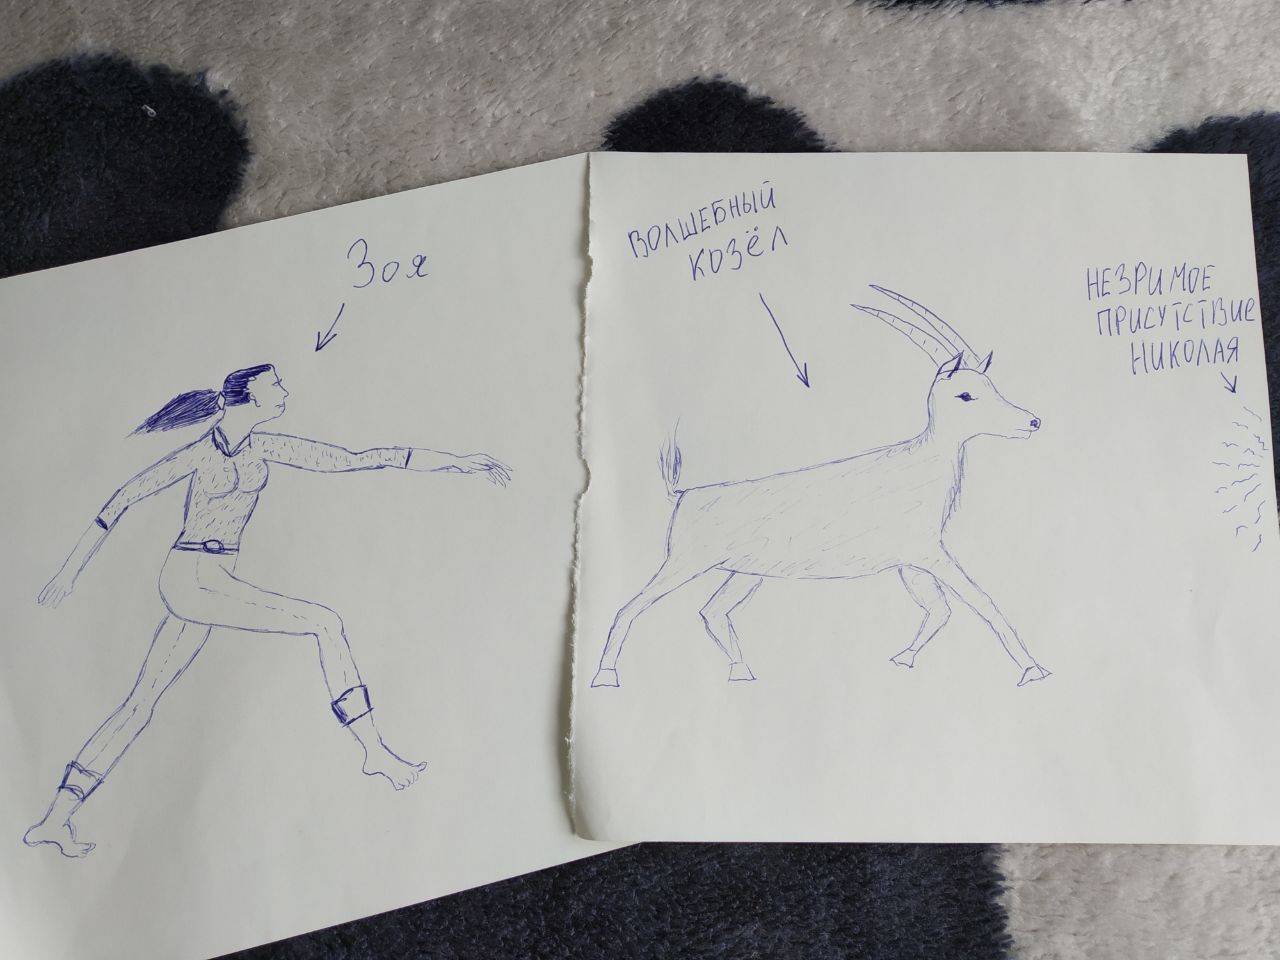 Зоя
ВОЛШЕБНЫЙ
КОЗЁЛ
НЕЗРИМОЕ
ПРИСУТСТВИЕ
НИКОЛАЯ